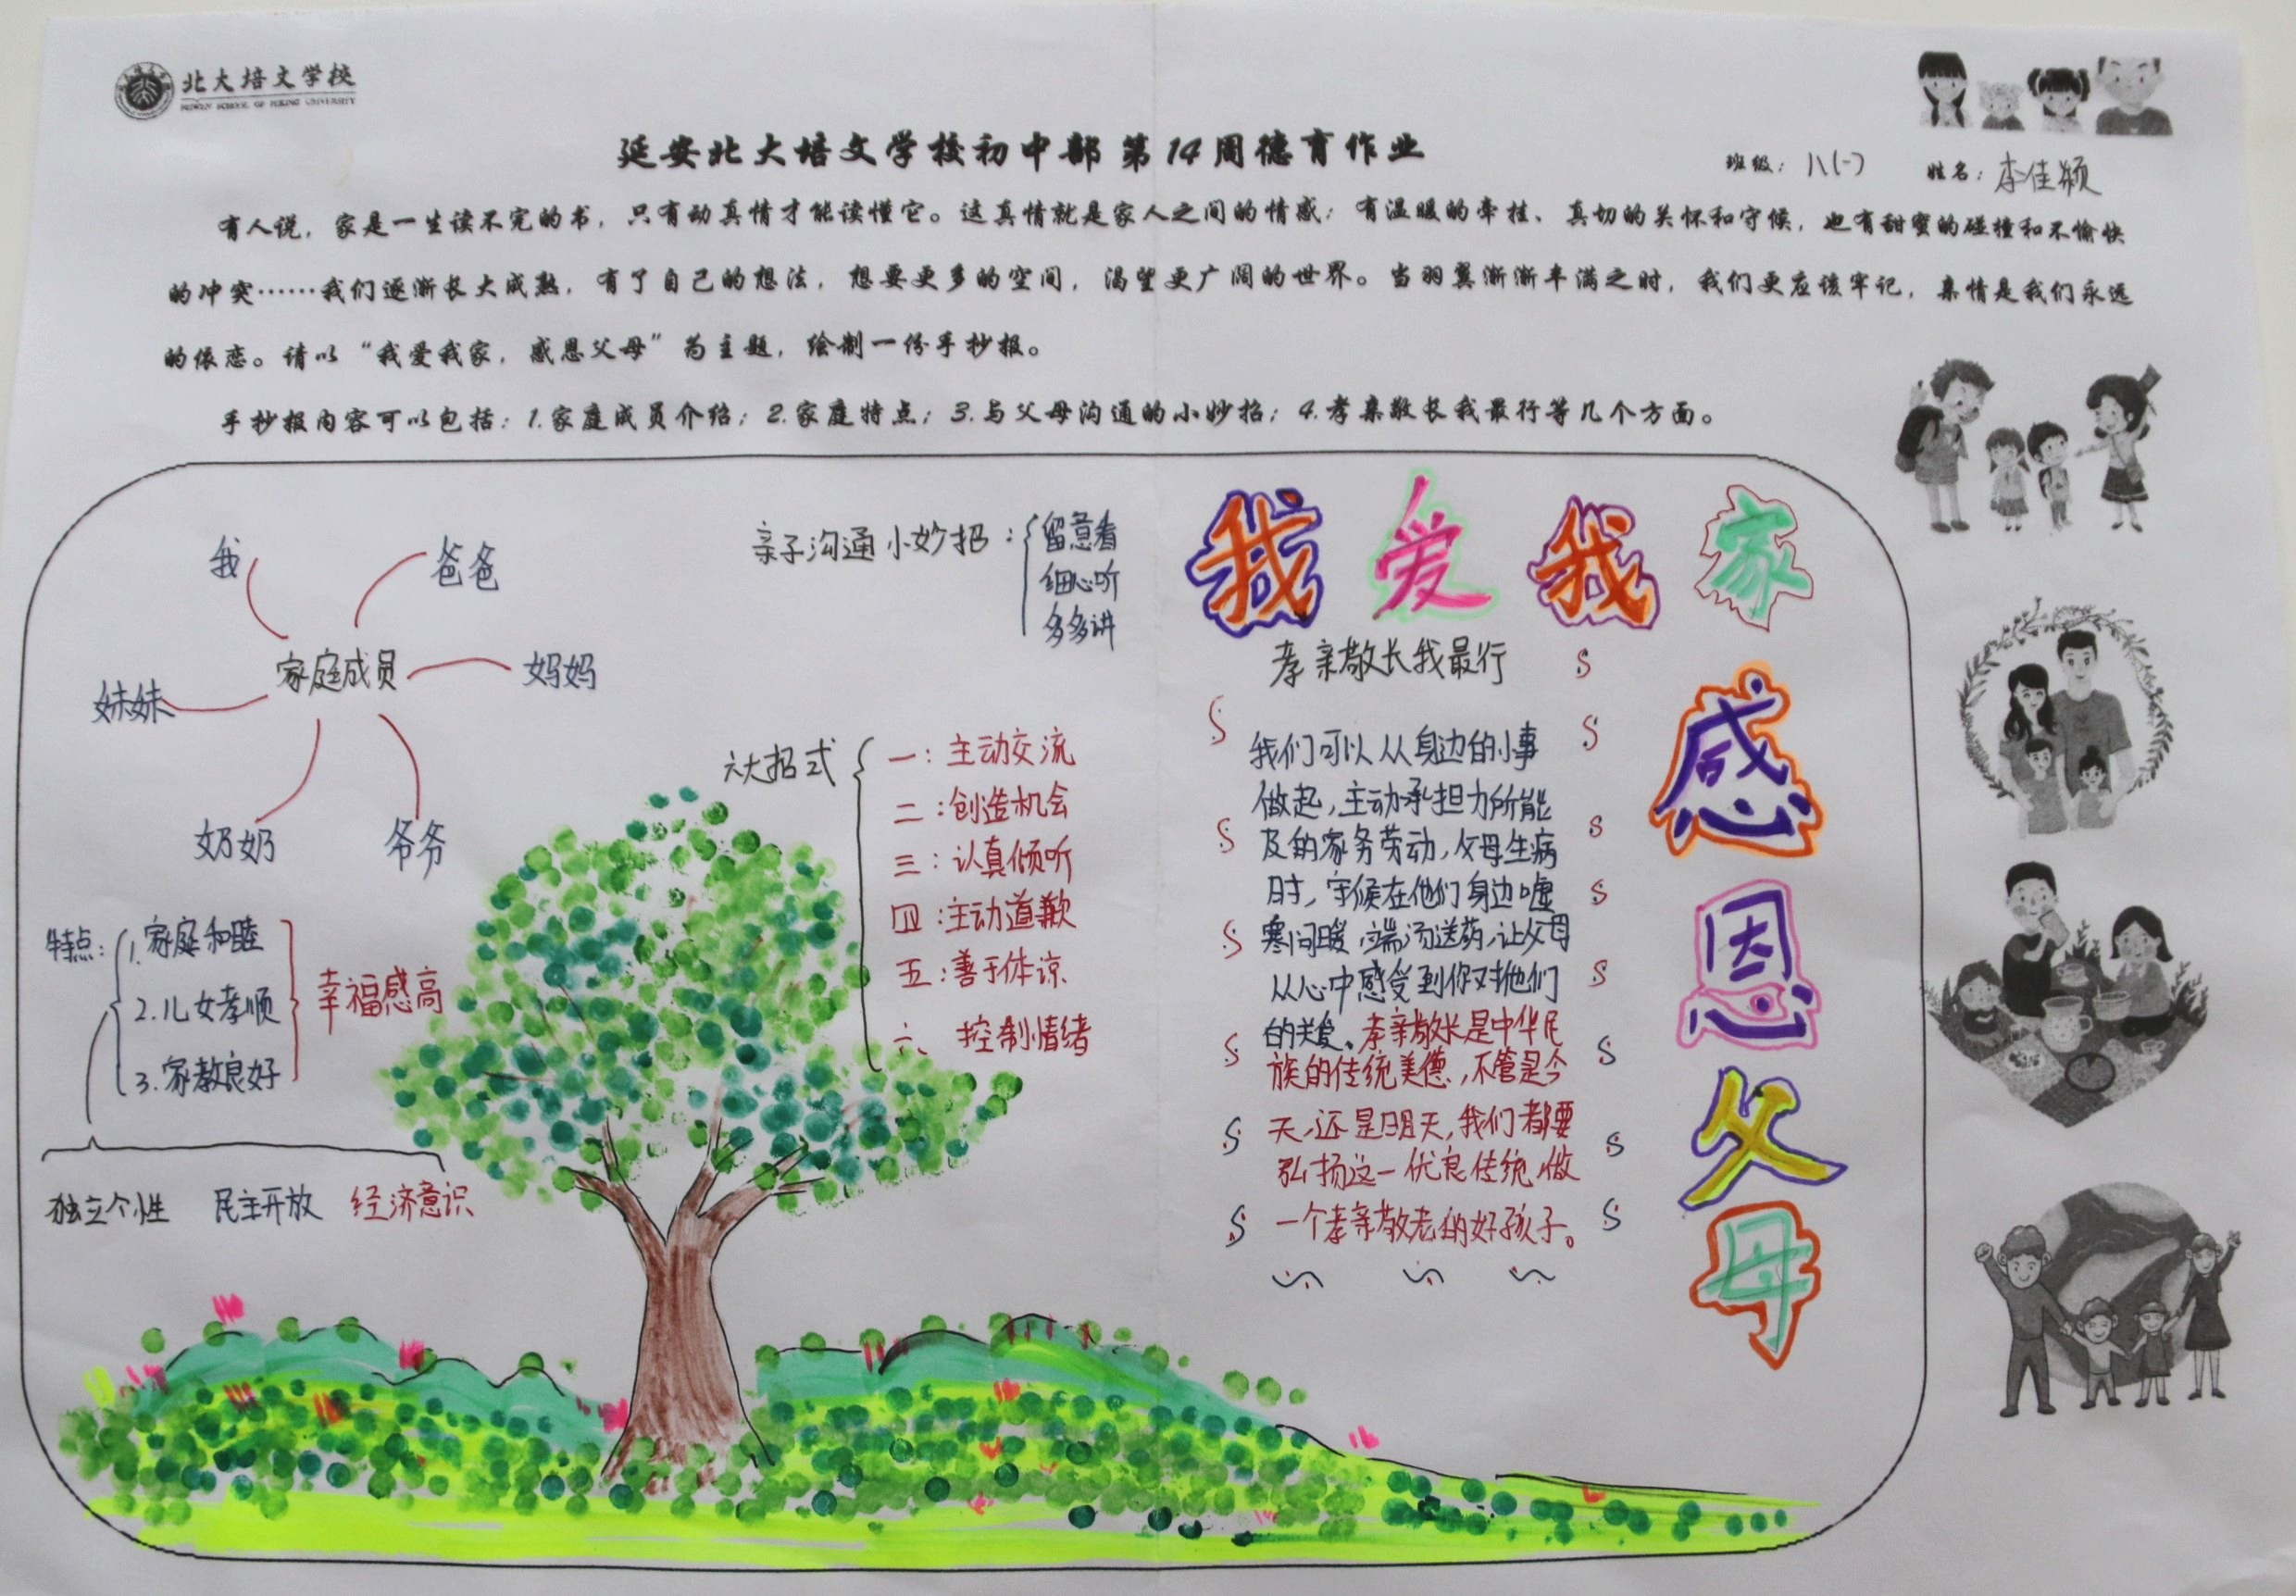 北大培文学校
PEIWEN SCHOOL OF PEKING UNIVERSITY
延安北大培文学校初中部第14周德育作业
班级：八(一) 姓名：李佳颖
有人说，家是一生读不完的书，只有动真情才能读懂它。这真情就是家人之间的情感：有温暖的牵挂、真切的关怀和守候，也有甜蜜的碰撞和不愉快
的冲突……我们逐渐长大成熟，有了自己的想法，想要更多的空间，渴望更广阔的世界。当羽翼渐渐丰满之时，我们更应该牢记，亲情是我们永远
的依恋。请以“我爱我家，感恩父母”为主题，绘制一份手抄报。
手抄报内容可以包括：1.家庭成员介绍；2.家庭特点；3.与父母沟通的小妙招；4.孝亲敬长我最行等几个方面。
我
爸爸
家庭成员
妈妈
妹妹
奶奶
爷爷
特点：
1.家庭和睦
2.儿女孝顺
3.家教良好
幸福感高
独立个性 民主开放 经济意识
亲子沟通小妙招：
留意看
细心听
多多讲
六大招式
一：主动交流
二：创造机会
三：认真倾听
四：主动道歉
五：善于体谅
六、控制情绪
我爱我家
感恩父母
孝亲敬长我最行
我们可以从身边的小事
做起，主动承担力所能
及的家务劳动，父母生病
时，守候在他们身边嘘
寒问暖，端汤送药，让父母
从心中感受到你对他们
的关爱。孝亲敬长是中华民
族的传统美德，不管是今
天，还是明天，我们都要
弘扬这一优良传统，做
一个孝亲敬老的好孩子。